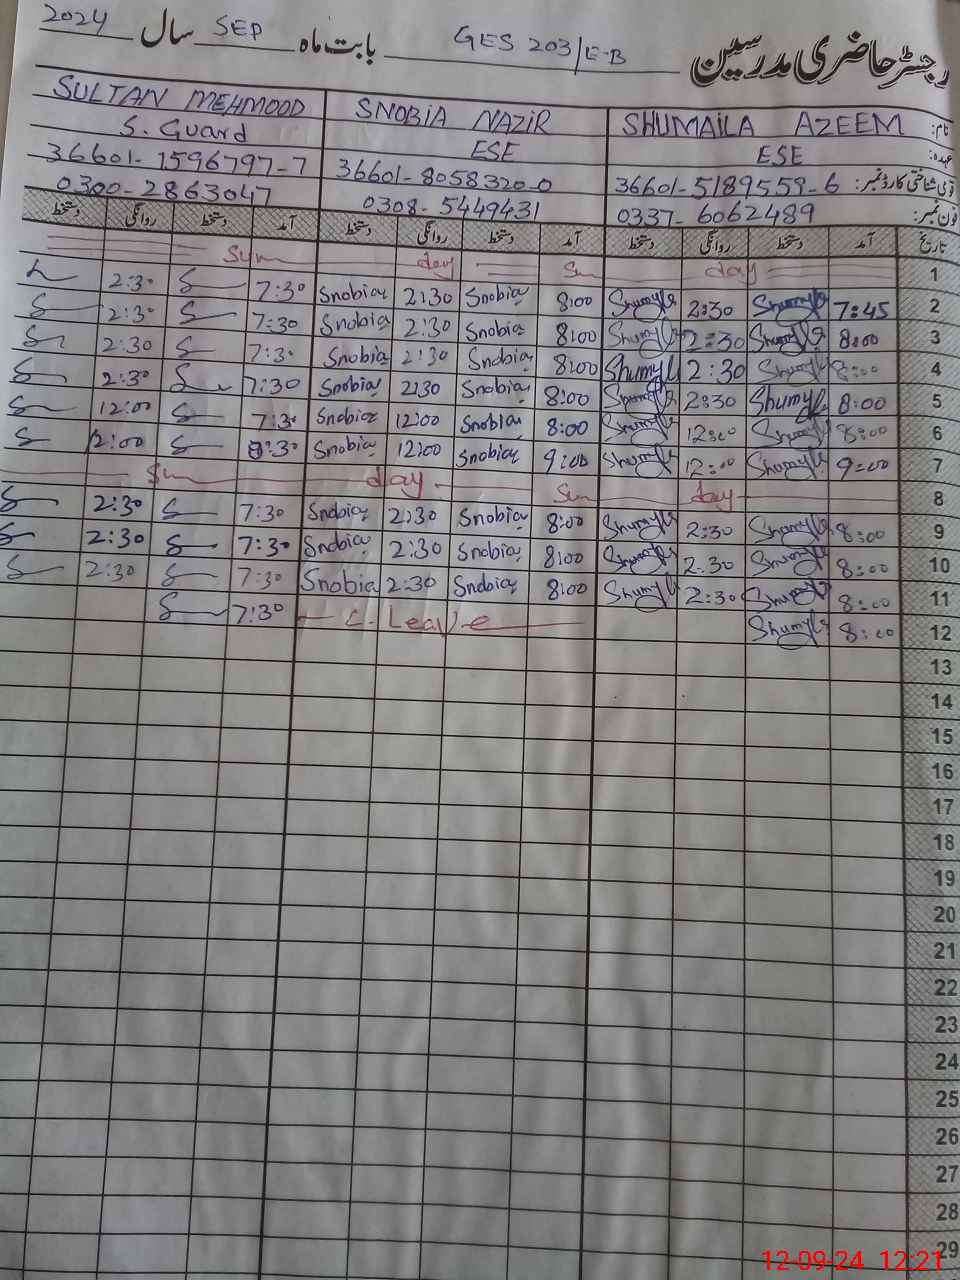 رجسٹر حاضری مدرسین GES 203/E-B بابت ماہ SEP سال 2024
نام: SHUMAILA AZEEM SNOBIA NAZIR SULTAN MEHMOOD
عہدہ: ESE ESE S. Guard
قومی شناختی کارڈ نمبر: 36601-5189559-6 36601-8058320-0 36601-1596797-7
فون نمبر: 0337-6062489 0308-5449431 0300-2863047
تاریخ آمد دستخط روانگی دستخط آمد دستخط روانگی دستخط آمد دستخط روانگی دستخط
1 Sun day Sun day
2 7:45 Shumyla 2:30 Shumyla 8:00 Snobia 2:30 Snobia 7:30 S 2:30
3 8:00 Shumyla 2:30 Shumyla 8:00 Snobia 2:30 Snobia 7:30 S 2:30 S
4 8:00 Shumyla 2:30 Shumyla 8:00 Snobia 2:30 Snobia 7:30 S 2:30 S
5 8:00 Shumyla 2:30 Shumyla 8:00 Snobia 2:30 Snobia 7:30 S 2:30 S
6 8:00 Shumyla 12:00 Shumyla 8:00 Snobia 12:00 Snobia 7:30 S 12:00 S
7 9:00 Shumyla 12:00 Shumyla 9:00 Snobia 12:00 Snobia :30 S 12:00 S
8 Sun day Sun day
9 8:00 Shumyla 2:30 Shumyla 8:00 Snobia 2:30 Snobia 7:30 S 2:30 S
10 8:00 Shumyla 2:30 Shumyla 8:00 Snobia 2:30 Snobia 7:30 S 2:30 S
11 8:00 Shumyla 2:30 Shumyla 8:00 Snobia 2:30 Snobia 7:30 S 2:30 S
12 8:00 Shumyla C. Leave 7:30 S
13
14
15
16
17
18
19
20
21
22
23
24
25
26
27
28
29
12-09-24 12:21